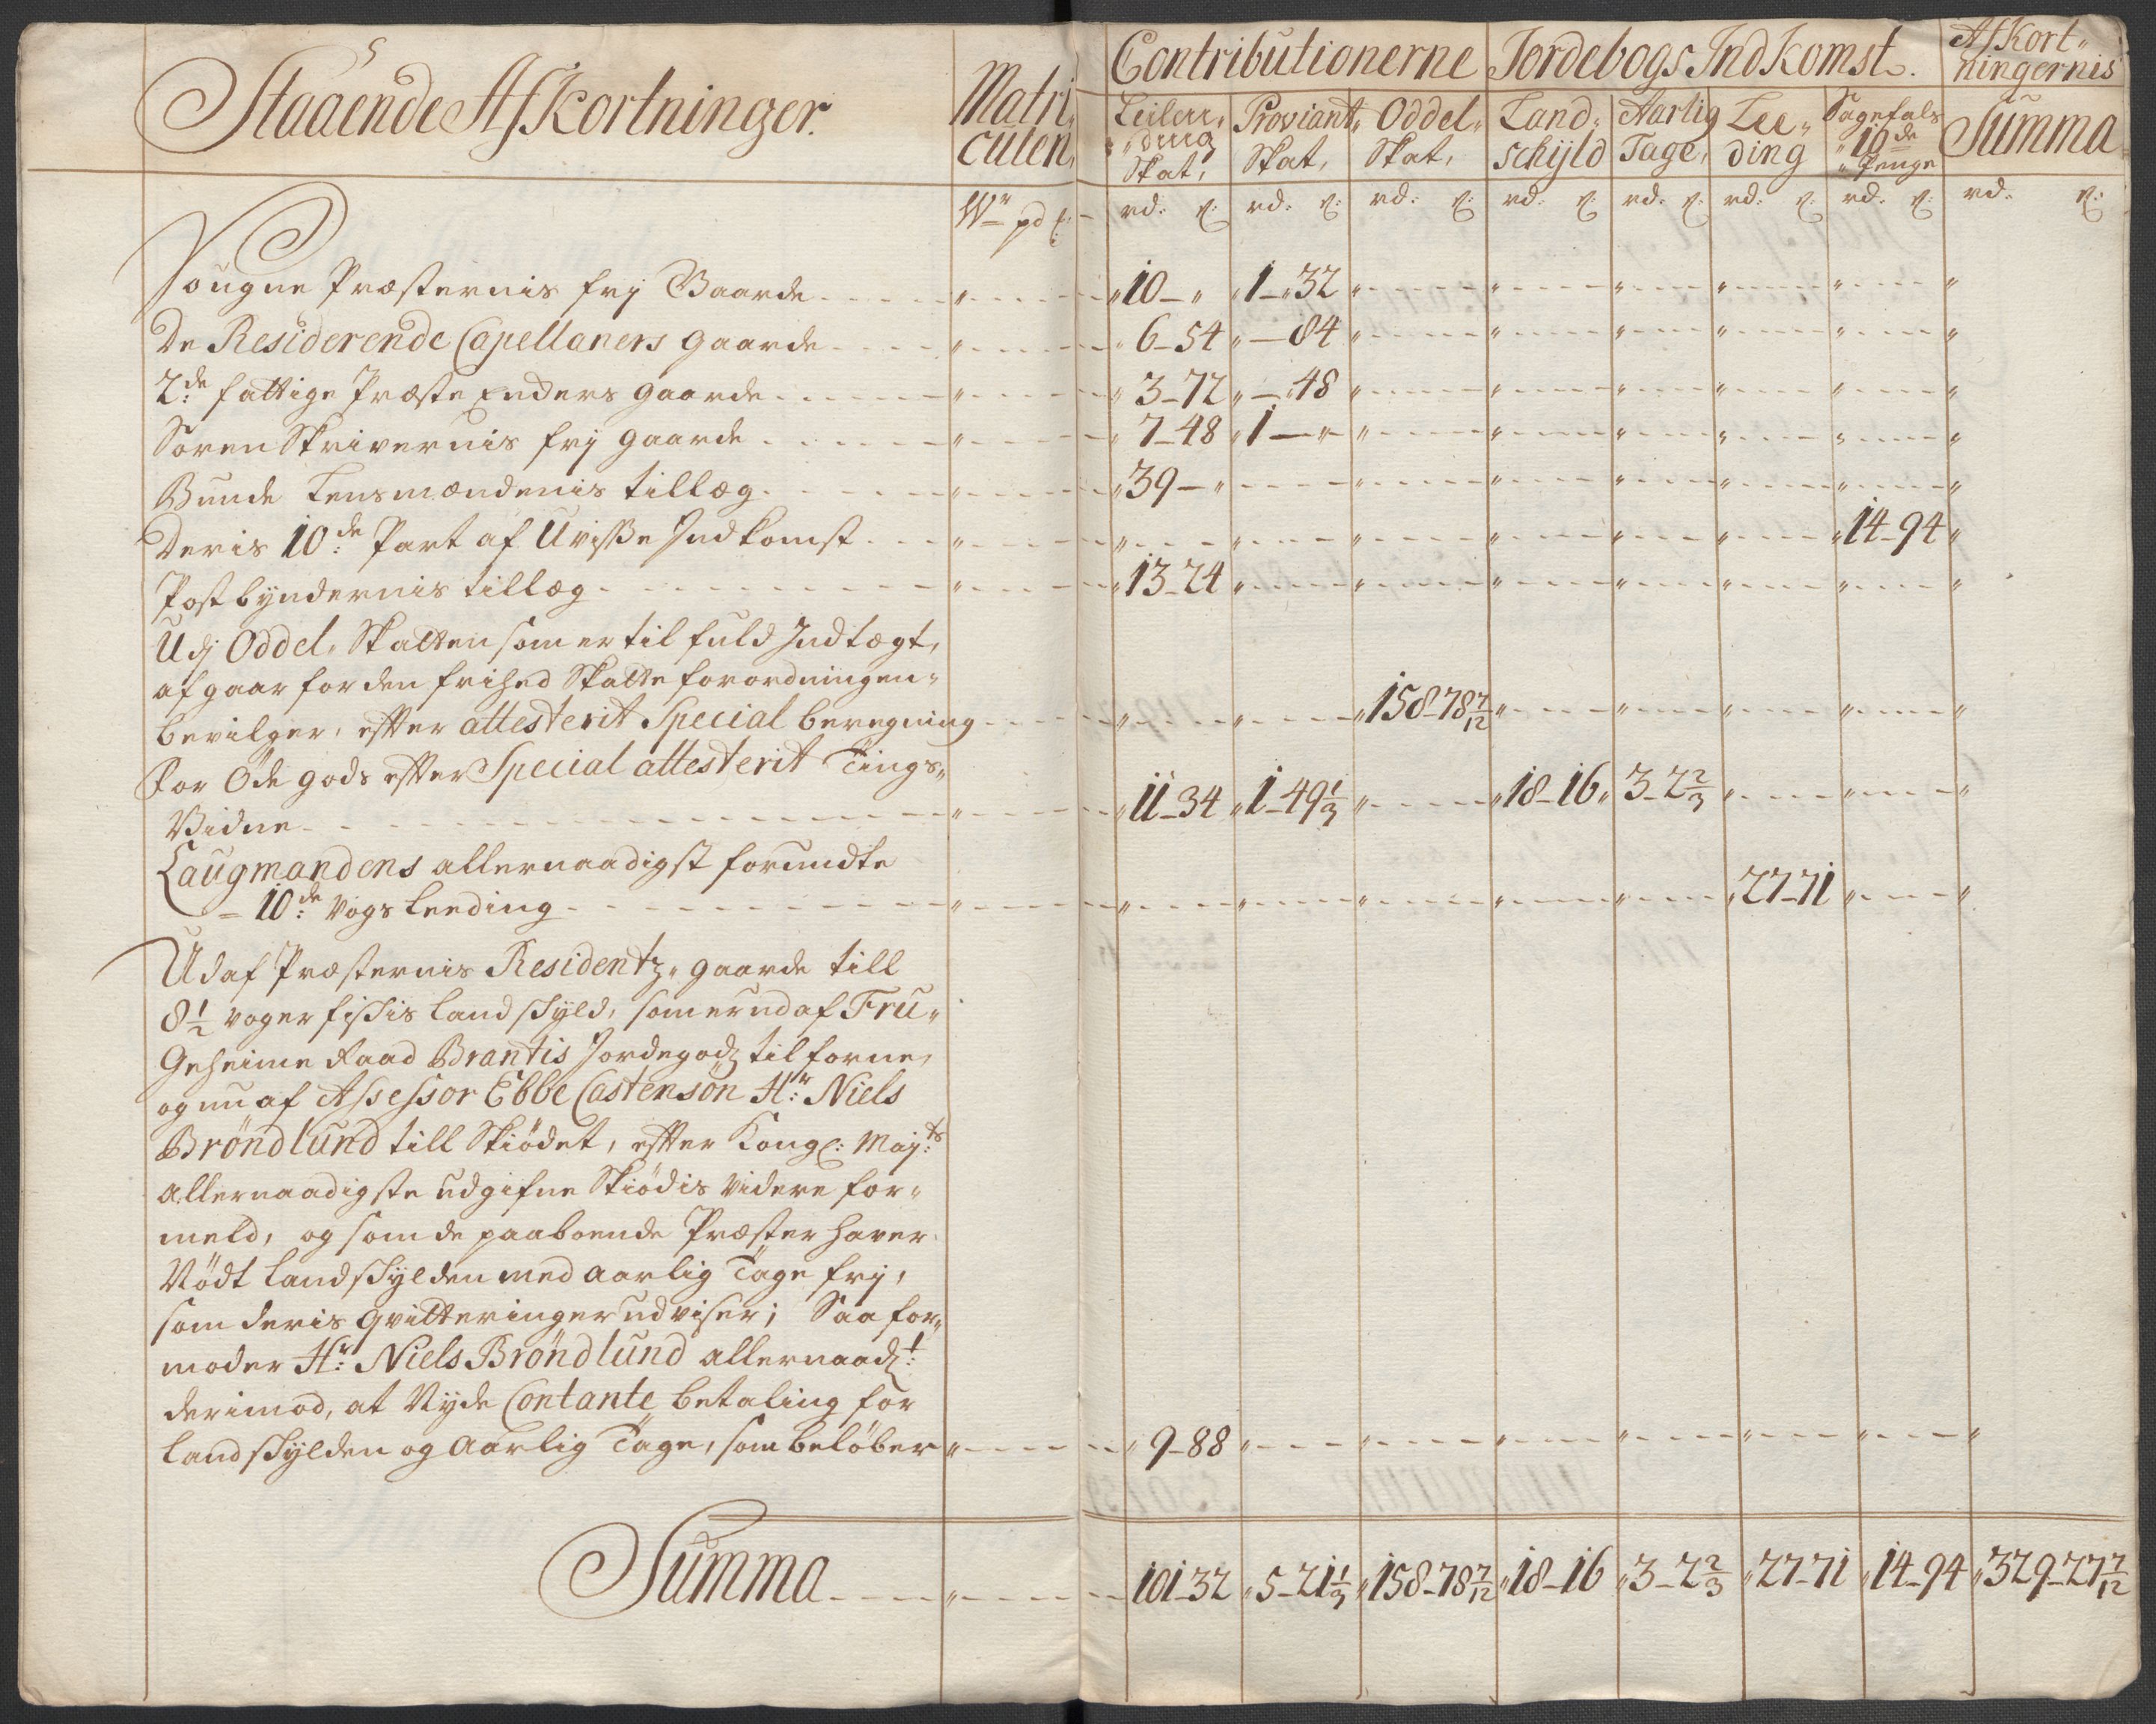 5
Staaende AfKortninger.
Matri-
culen,
Contributionerne
Jordebogs IndKomst.
AfKort-
ningernis
Leilen-
ding
Skat,
Proviant,
Skat,
Oddel-
Skat,
Land-
schyld
Aarlig
Tage,
Lee-
ding
Sagefals
10de
Penge
Summa
Wr pd
rd: rd: rd: rd: rd: rd: rd: rd:
Sougne Præsternis frj Gaarde 10 - " 1 - 32
De Residerende Capellaners gaarde 6 - 54 - 84
2de fattige Præste Enckers gaarde 3 - 72 - 48
Soren Skrivernis frj gaarde 7 - 48 1 - "
Bunde Lensmændenis tillæg 39 - "
Deris 10de Part af Uvisse Indkomst 14 - 94
Postbyndernis tillæg 13 - 24
Udj Oddel-Skatten som er til fuld Indtægt,
afgaar for den frihed Skatte forordningen-
bevilger, efter attesterit Special beregning 158 - 78 7/12
For Öde gods efter Special attesterit Tings-
Vidne 11 - 34 1 - 49 1/3 18 - 16 3 - 2 2/3
Laugmandens allernaadigst forundte
- 10de Vogs Leeding 27 - 71
Udaf Præsternis Residentz-gaarde till
8 1/2 voger fiskis Landskyld, som er udaf Fru-
Geheime Raad Brantis Jordegodz tilforne,
og nu af Assessor Ebbe Castensön Hr: Niels
Bröndlund till Skiödet, efter Kongl: Majts
allernaadigste udgifne Skiödis videre for-
meld, og som de paaboende Præster haver
Nödt Landskylden med aarlig Tage frj,
som deris qvitteringer udviser; Saa for-
moder Hr: Niels Bröndlund allernaadt:
derimod, at Nyde Contante betaling for
Landskylden og Aarlig Tage, som belöber 9 - 88
Summa 101 - 32 5 - 21 1/3 158 - 78 7/12 18 - 16 3 - 2 2/3 27 - 71 14 - 94 329 - 27 7/12